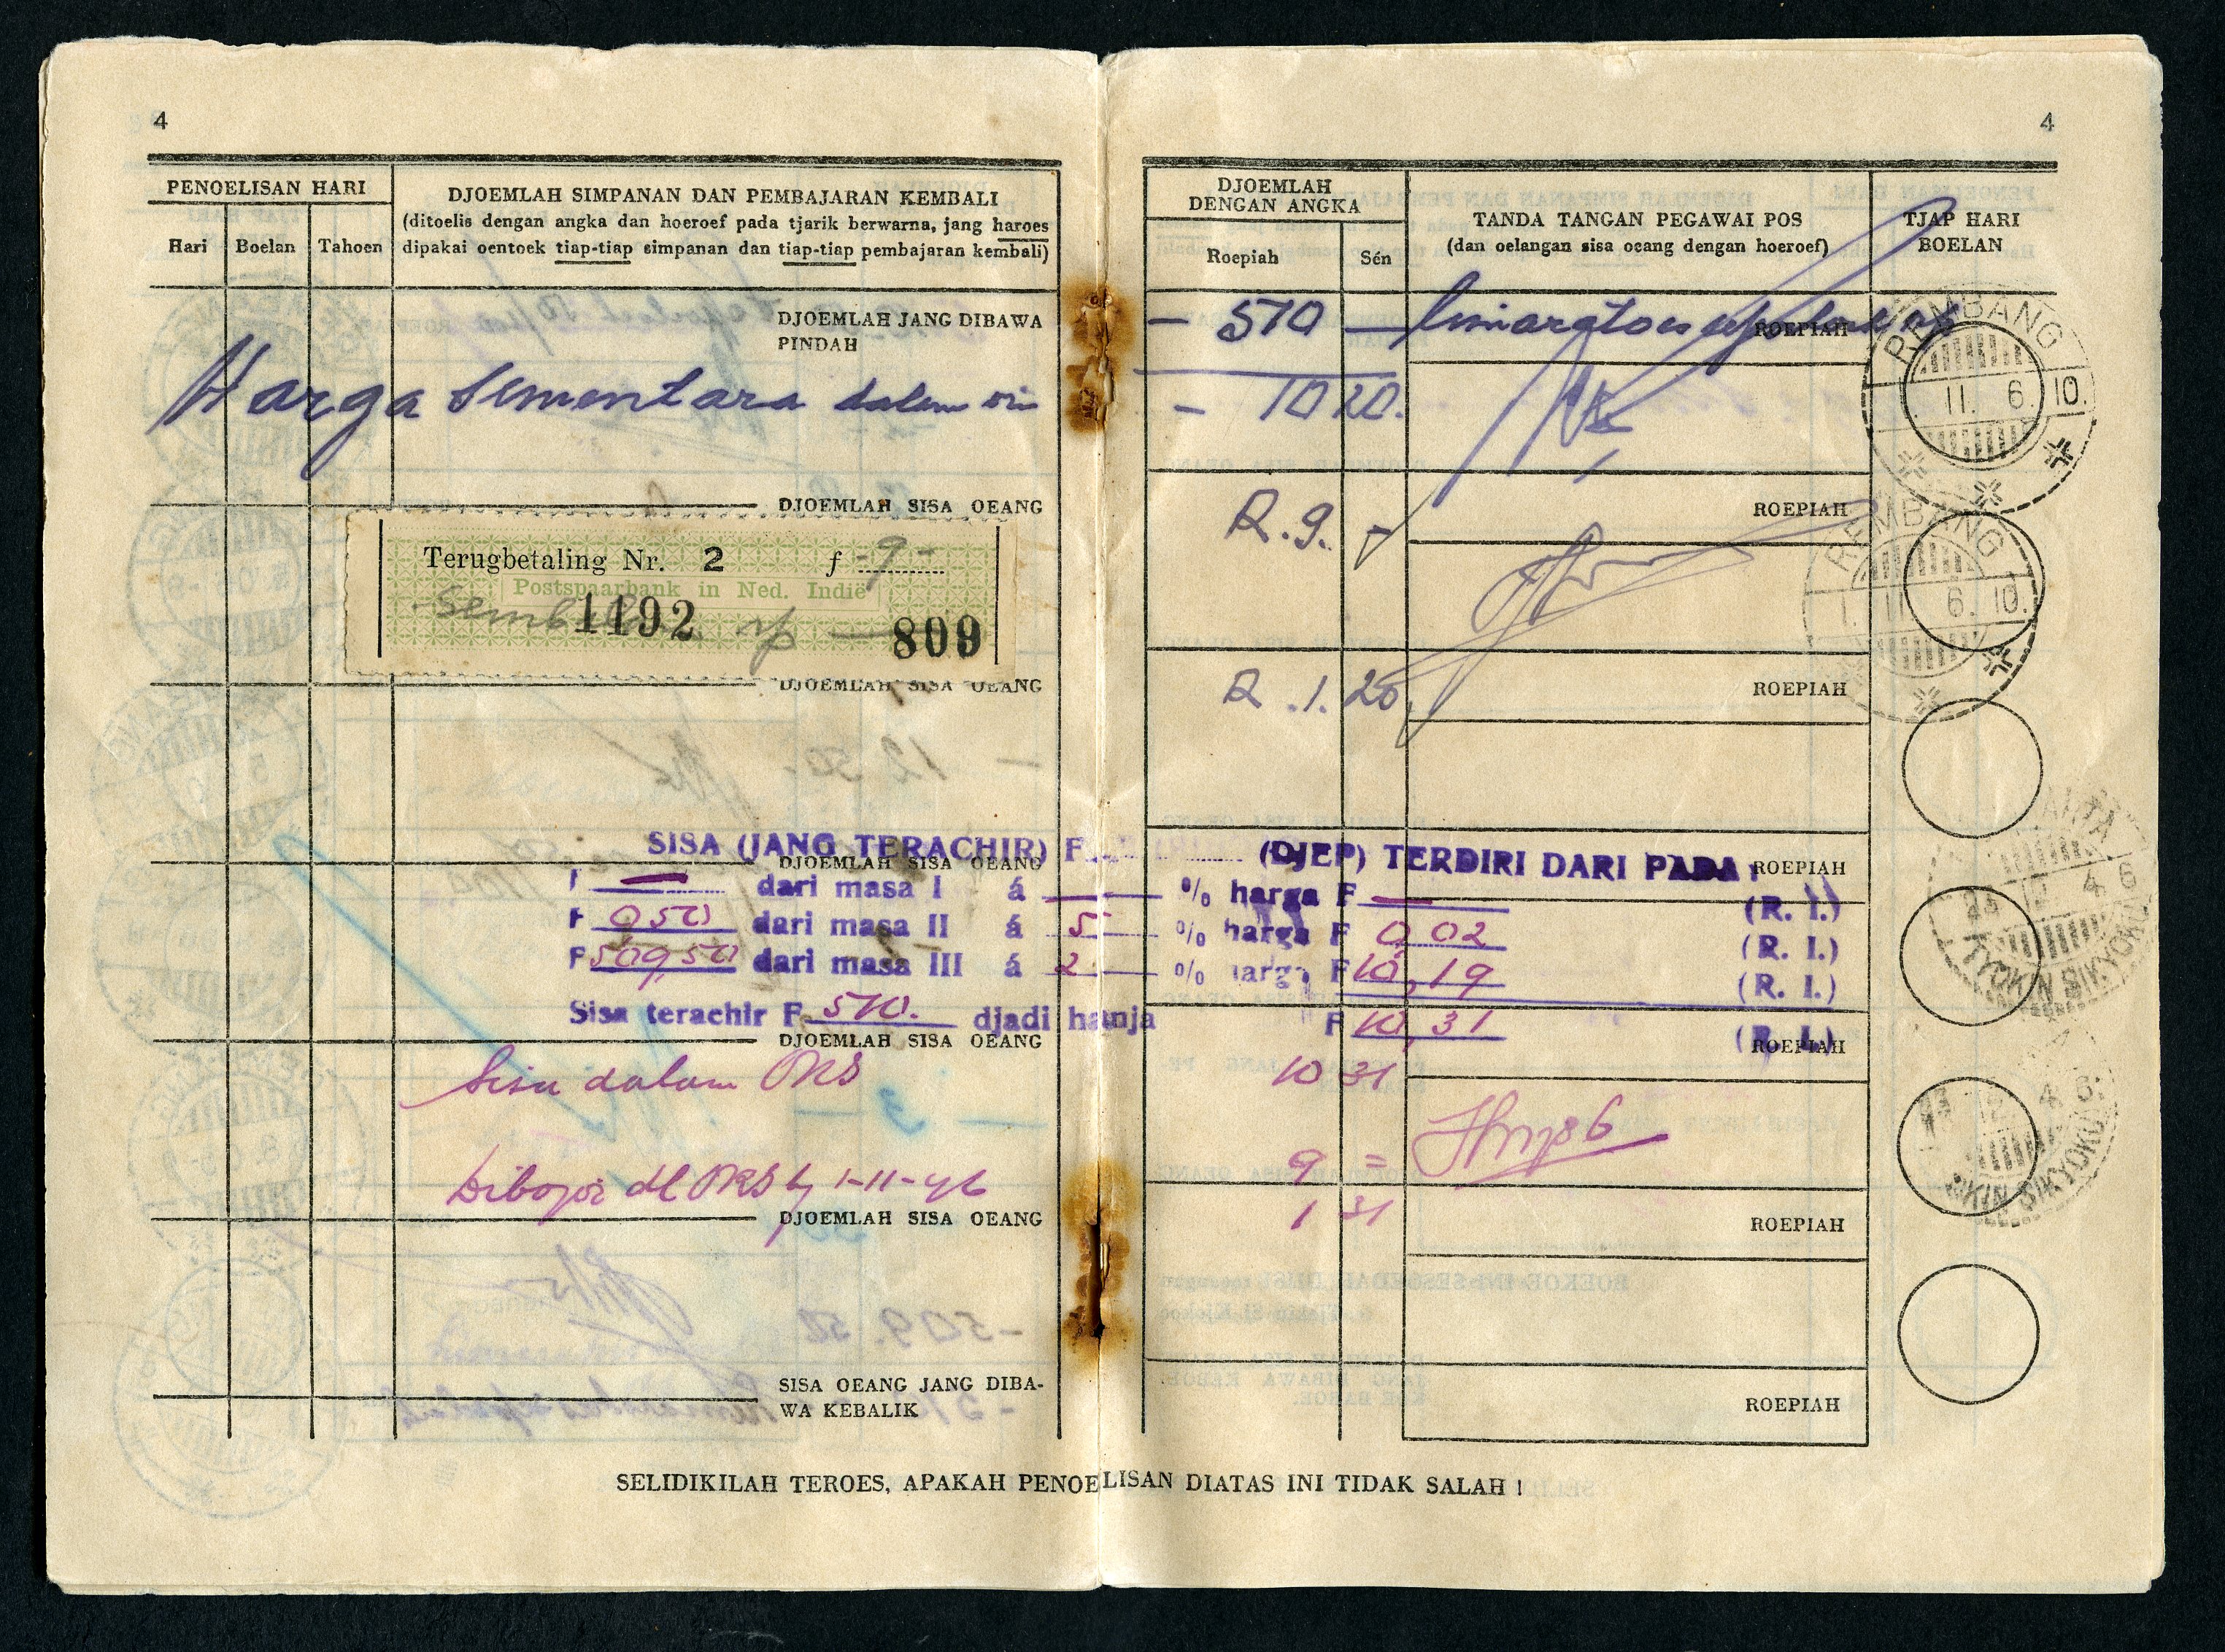 4
4
PENOELISAN HARI
Hari Boelan Tahoen
DJOEMLAH SIMPANAN DAN PEMBAJARAN KEMBALI
(ditoelis dengan angka dan hoeroef pada tjarik berwarna, jang haroes
dipakai oentoek tiap-tiap simpanan dan tiap-tiap pembajaran kembali)
DJOEMLAH
DENGAN ANGKA
Roepiah Sén
TANDA TANGAN PEGAWAI POS
(dan oelangan sisa oeang dengan hoeroef)
TJAP HARI
BOELAN
DJOEMLAH JANG DIBAWA
PINDAH
- 510 —
ROEPIAH
REMBANG
11. 6. 10.
Harga sementara dalam
- 10 20.
DJOEMLAH SISA OEANG
R. 9. -
ROEPIAH
REMBANG
1. 11 6. 10.
Terugbetaling Nr. 2 f -9-
Postspaarbank in Ned. Indië
rp
1192
809
DJOEMLAH SISA OEANG
R. 1. 20
ROEPIAH
SISA (JANG TERACHIR) F (DJEP) TERDIRI DARI PADA
DJOEMLAH SISA OEANG
ROEPIAH
F — dari masa I á — % harga F — (R. I.)
F 0 50 dari masa II á 5 % harga F 0,02 (R. I.)
F 509,50 dari masa III á 2 % harga F 10,19 (R. I.)
Sisa terachir F 510. djadi hanja F 10,31 (R. I.)
4 6
KYOKIN SIKYOKU
DJOEMLAH SISA OEANG
ROEPIAH
Sisa dalam ORS
10 31
4 6.
KIN SIKYOKU
9 =
Dibajar dl ORS tg 1-11-46
1 31
DJOEMLAH SISA OEANG
ROEPIAH
SISA OEANG JANG DIBA-
WA KEBALIK
ROEPIAH
SELIDIKILAH TEROES, APAKAH PENOELISAN DIATAS INI TIDAK SALAH !